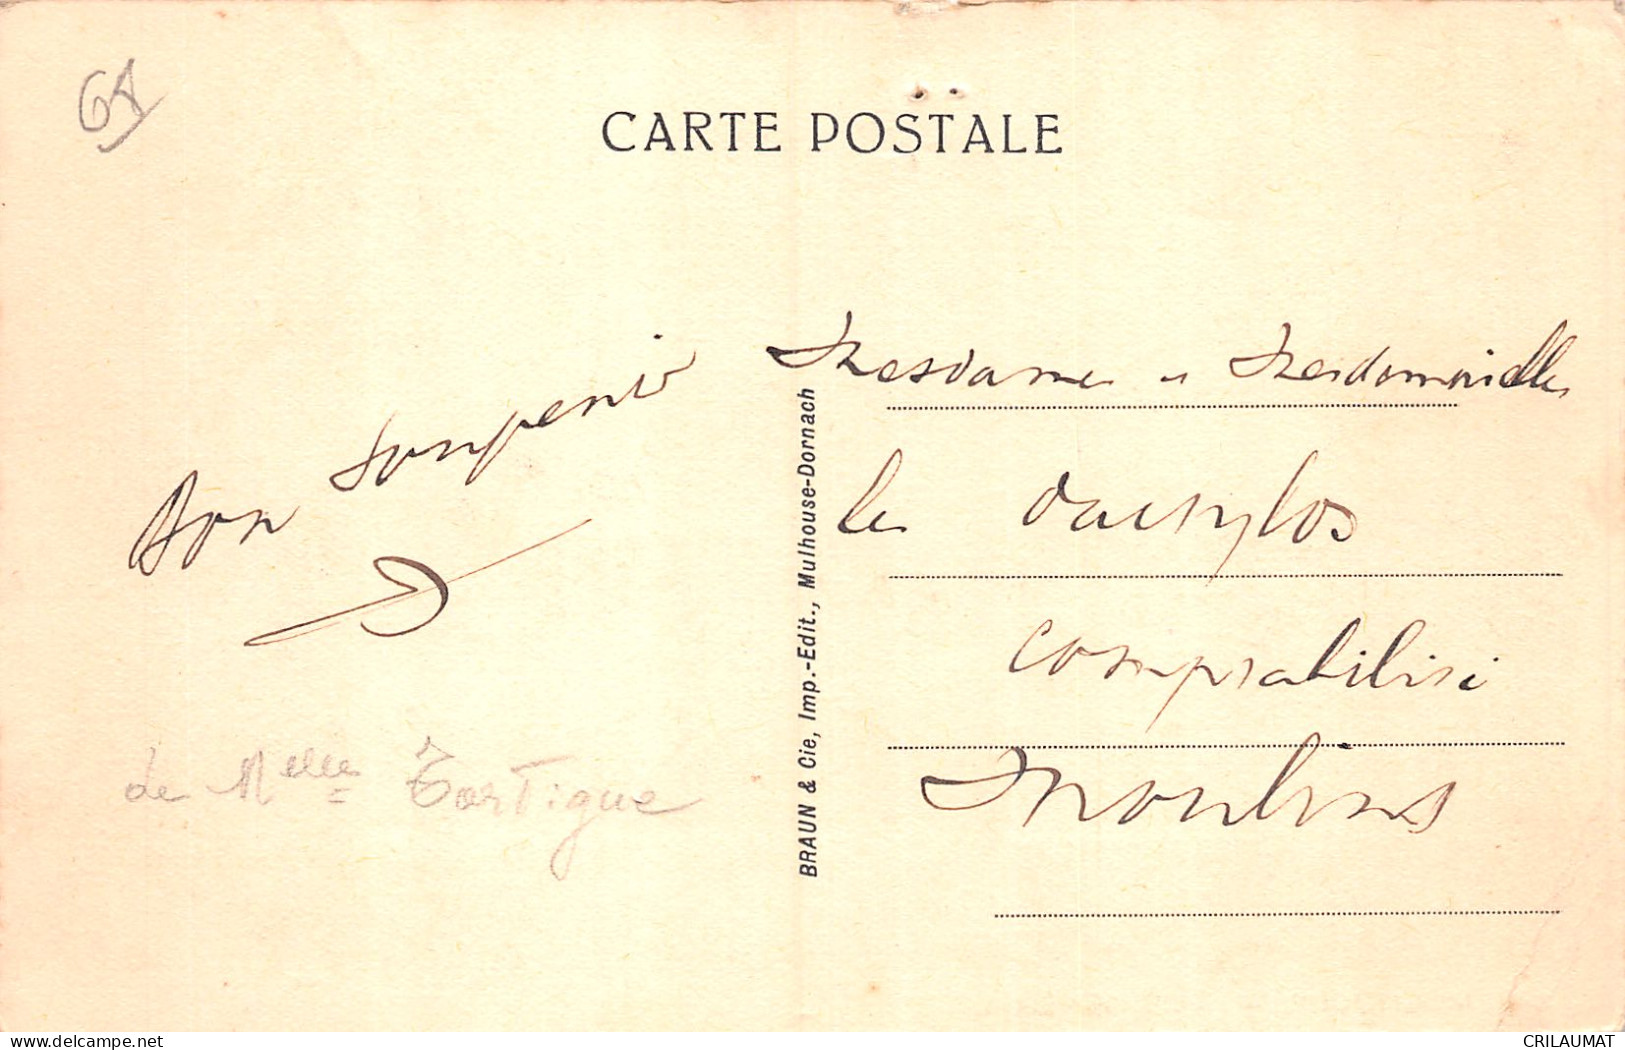 CARTE POSTALE
Bon souvenir
de Melle Tortigue
BRAUN & Cie, Imp.-Edit., Mulhouse-Dornach
Mesdames et Mesdemoiselles
les dactylos
comptabilité
Moulins
delcampe.net
CRILAUMAT